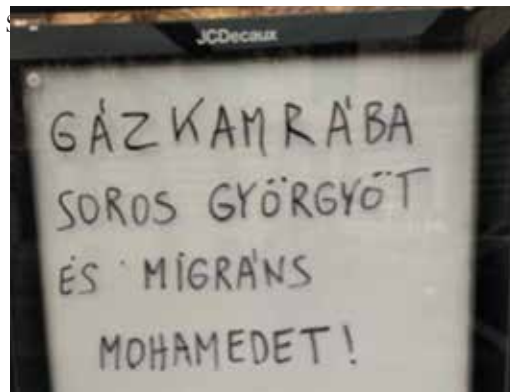 JCDecaux
GÁZKAMRÁBA
SOROS GYÖRGYÖT
ÉS MIGRÁNS
MOHAMEDET!